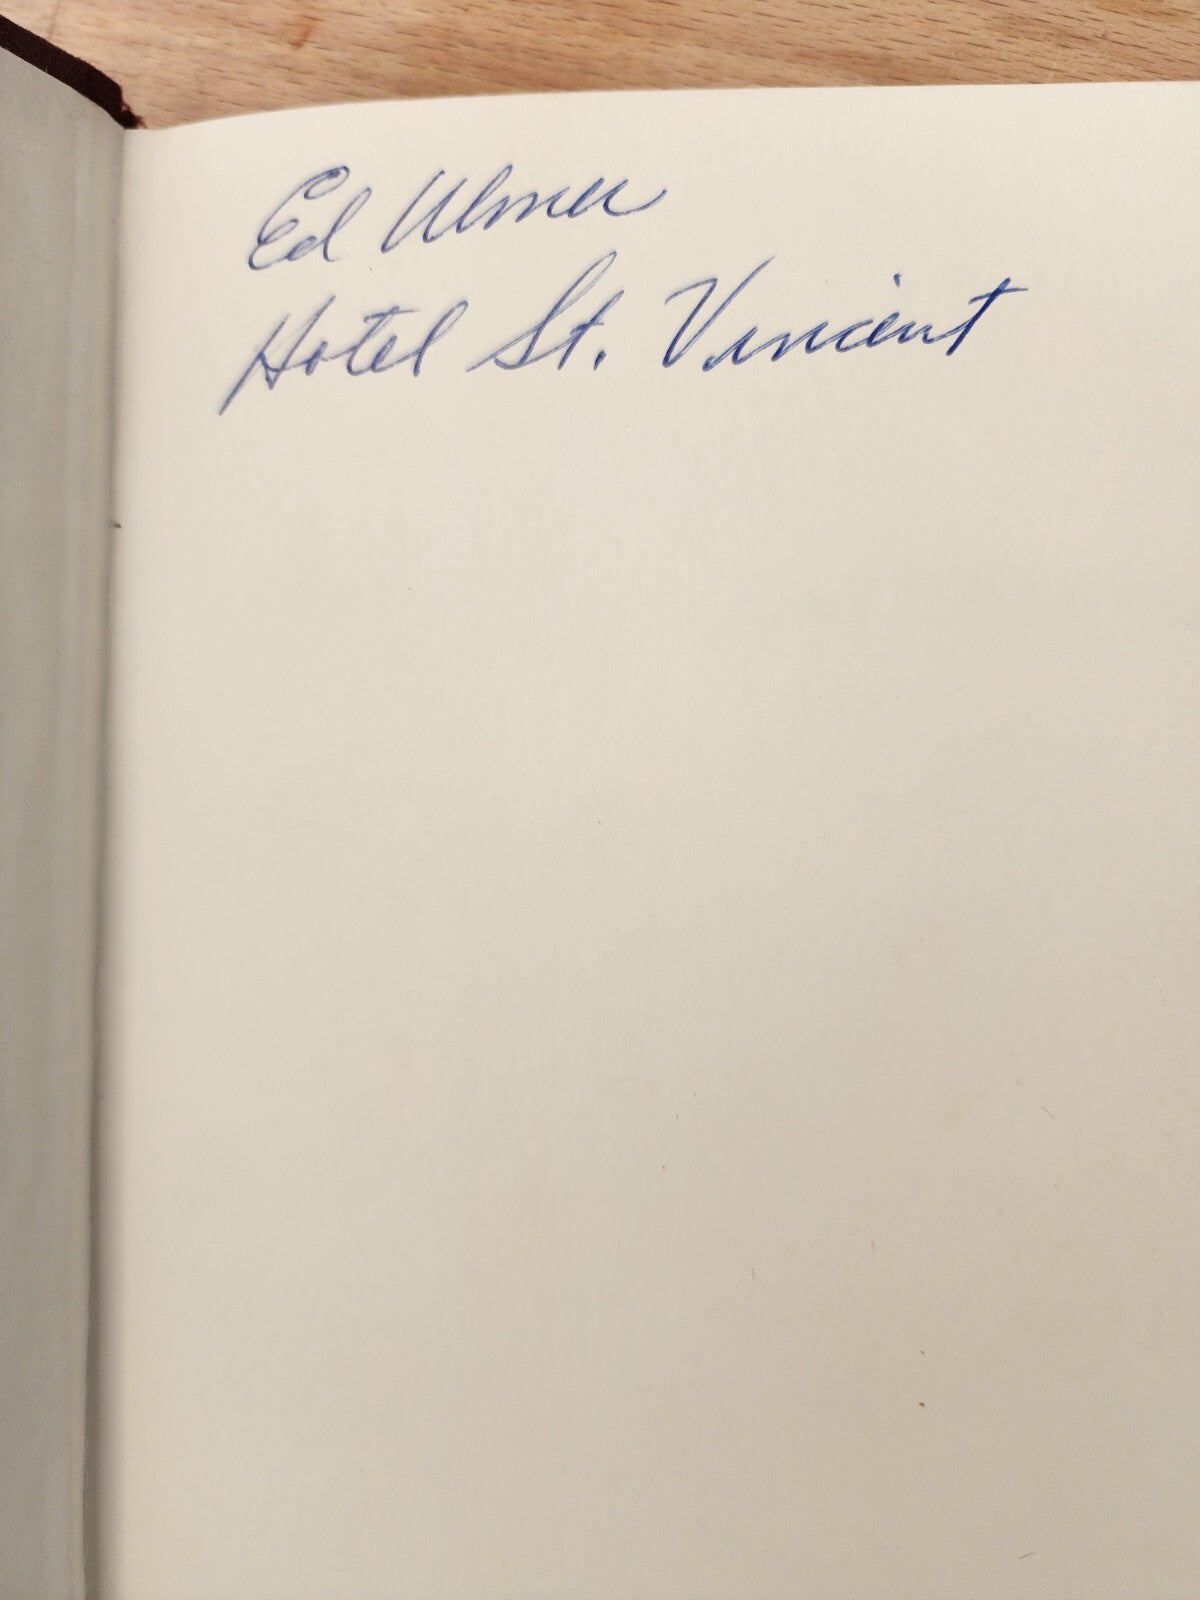 Ed Ulmer
Hotel St. Vincent